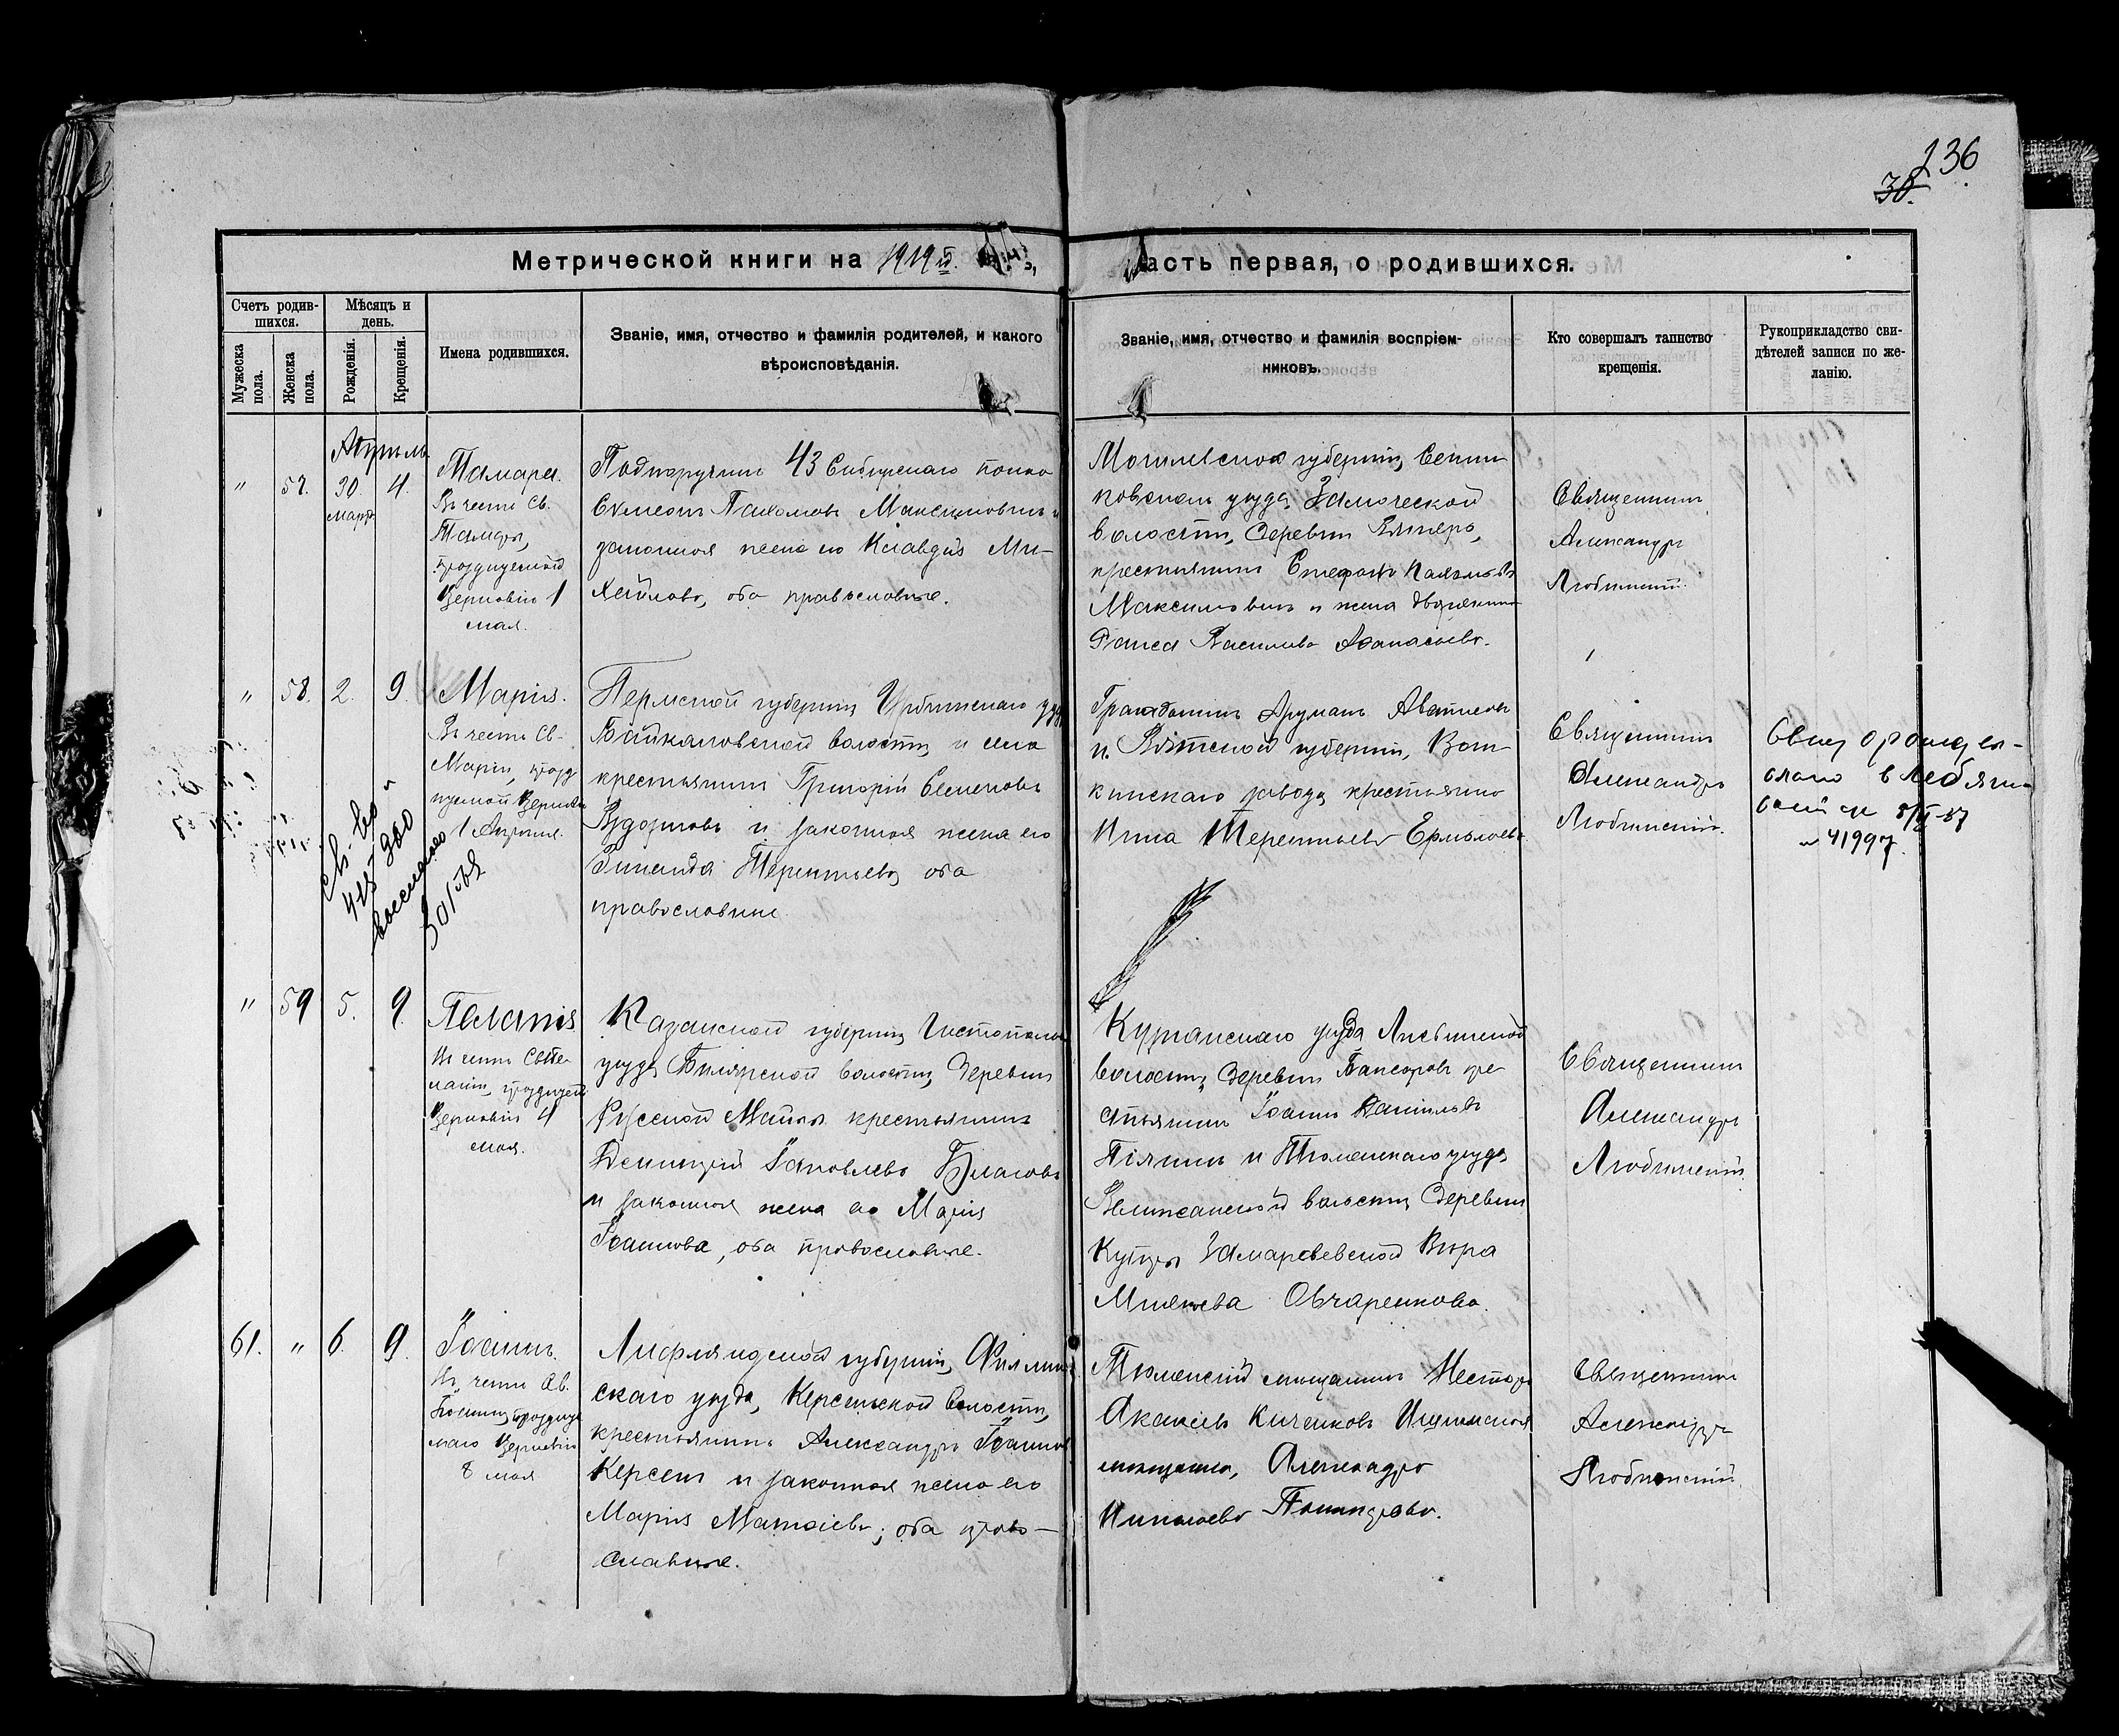 136
30.
Метрической книги на 1919 г.
часть первая, о родившихся.
Счетъ родив-
шихся.
Мѣсяцъ и
день.
Мужеска
пола.
Женска
пола.
Рожденія.
Крещенія.
Имена родившихся.
Званіе, имя, отчество и фамилія родителей, и какого
вѣроисповѣданія.
Званіе, имя, отчество и фамилія воспріем-
никовъ.
Кто совершалъ таинство
крещенія.
Рукоприкладство сви-
дѣтелей записи по же-
ланію.
Апрѣль
" 57. 30. 4.
марта
Тамара.
Въ честь Св.
Тамары,
празднуемой
Церковію 1
мая.
Подпоручикъ 43 Сибирскаго полка
Симеонъ Пахомовъ Максимовичъ и
законная жена его Клавдія Ми-
хайлова, оба православные.
Могилевской губерніи, Сѣнни-
уѣзда
волости, деревни
крестьянинъ Стефанъ Пахомовъ
Максимовичъ и жена дворянина
Раиса Васильева Афанасьева.
Священникъ
Александръ
Любимскій.
" 58. 2. 9.
Марія.
Въ честь Св.
Маріи, празд-
нуемой Церковію
1 Апрѣля.
Пермской губерніи Ирбитскаго уѣз.
Байкаловской волости и села
крестьянинъ Григорій Семеновъ
и законная жена его
Зинаида Терентьева, оба
православные.
Гражданинъ
и Вятской губерніи, Вот-
кинскаго завода крестьянка
Нина Терентьева Ермолаева.
Священникъ
Александръ
Любимскій.
Свид о рожден-
выслано в Лебяжь-
41997.
Св-во
425360
выслано
" 59 5. 9.
Пелагія
Въ честь Св. Пе-
лагіи, празднуемой
Церковію 4
мая.
Казанской губерніи, Чистополь
уѣзда Билярской волости, деревни
Русской Майны крестьянинъ
Димитрій Іаковлевъ Власовъ
и законная жена его Марія
Іоаннова, оба православные.
Курганскаго уѣзда
волости, деревни кре-
стьянинъ Іоаннъ
и Тюменскаго уѣзда,
Велижанской волости деревни
Вѣра
Овчаренкова.
Священникъ
Александръ
Любимскій.
61. " 6. 9.
Іоаннъ.
Въ честь Св.
Іоанна, праздну-
маго Церковію
8 мая
Лифляндской губерніи, Феллин-
скаго уѣзда, Керсельской волости,
крестьянинъ Александръ Іоанновъ
Керсенъ и законная жена его
Марія Матѳіева; оба право-
славные.
Тюменскій мѣщанинъ Несторъ
Акакіевъ Ишимская
мѣщанка, Александра
Николаева
Священникъ
Александръ
Любимскій.